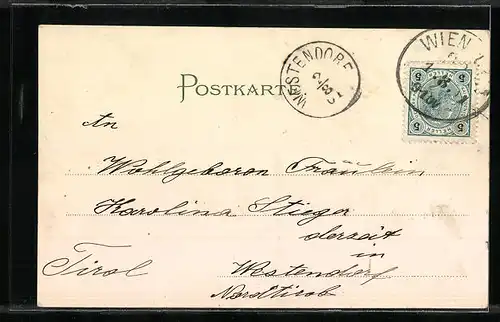 WIEN
WESTENDORF
2/8
POSTKARTE
5 5
5 5
An
Wohlgeboren Fräulein
Karolina Stieger
derzeit
in
Tirol Westendorf
Nordtirol